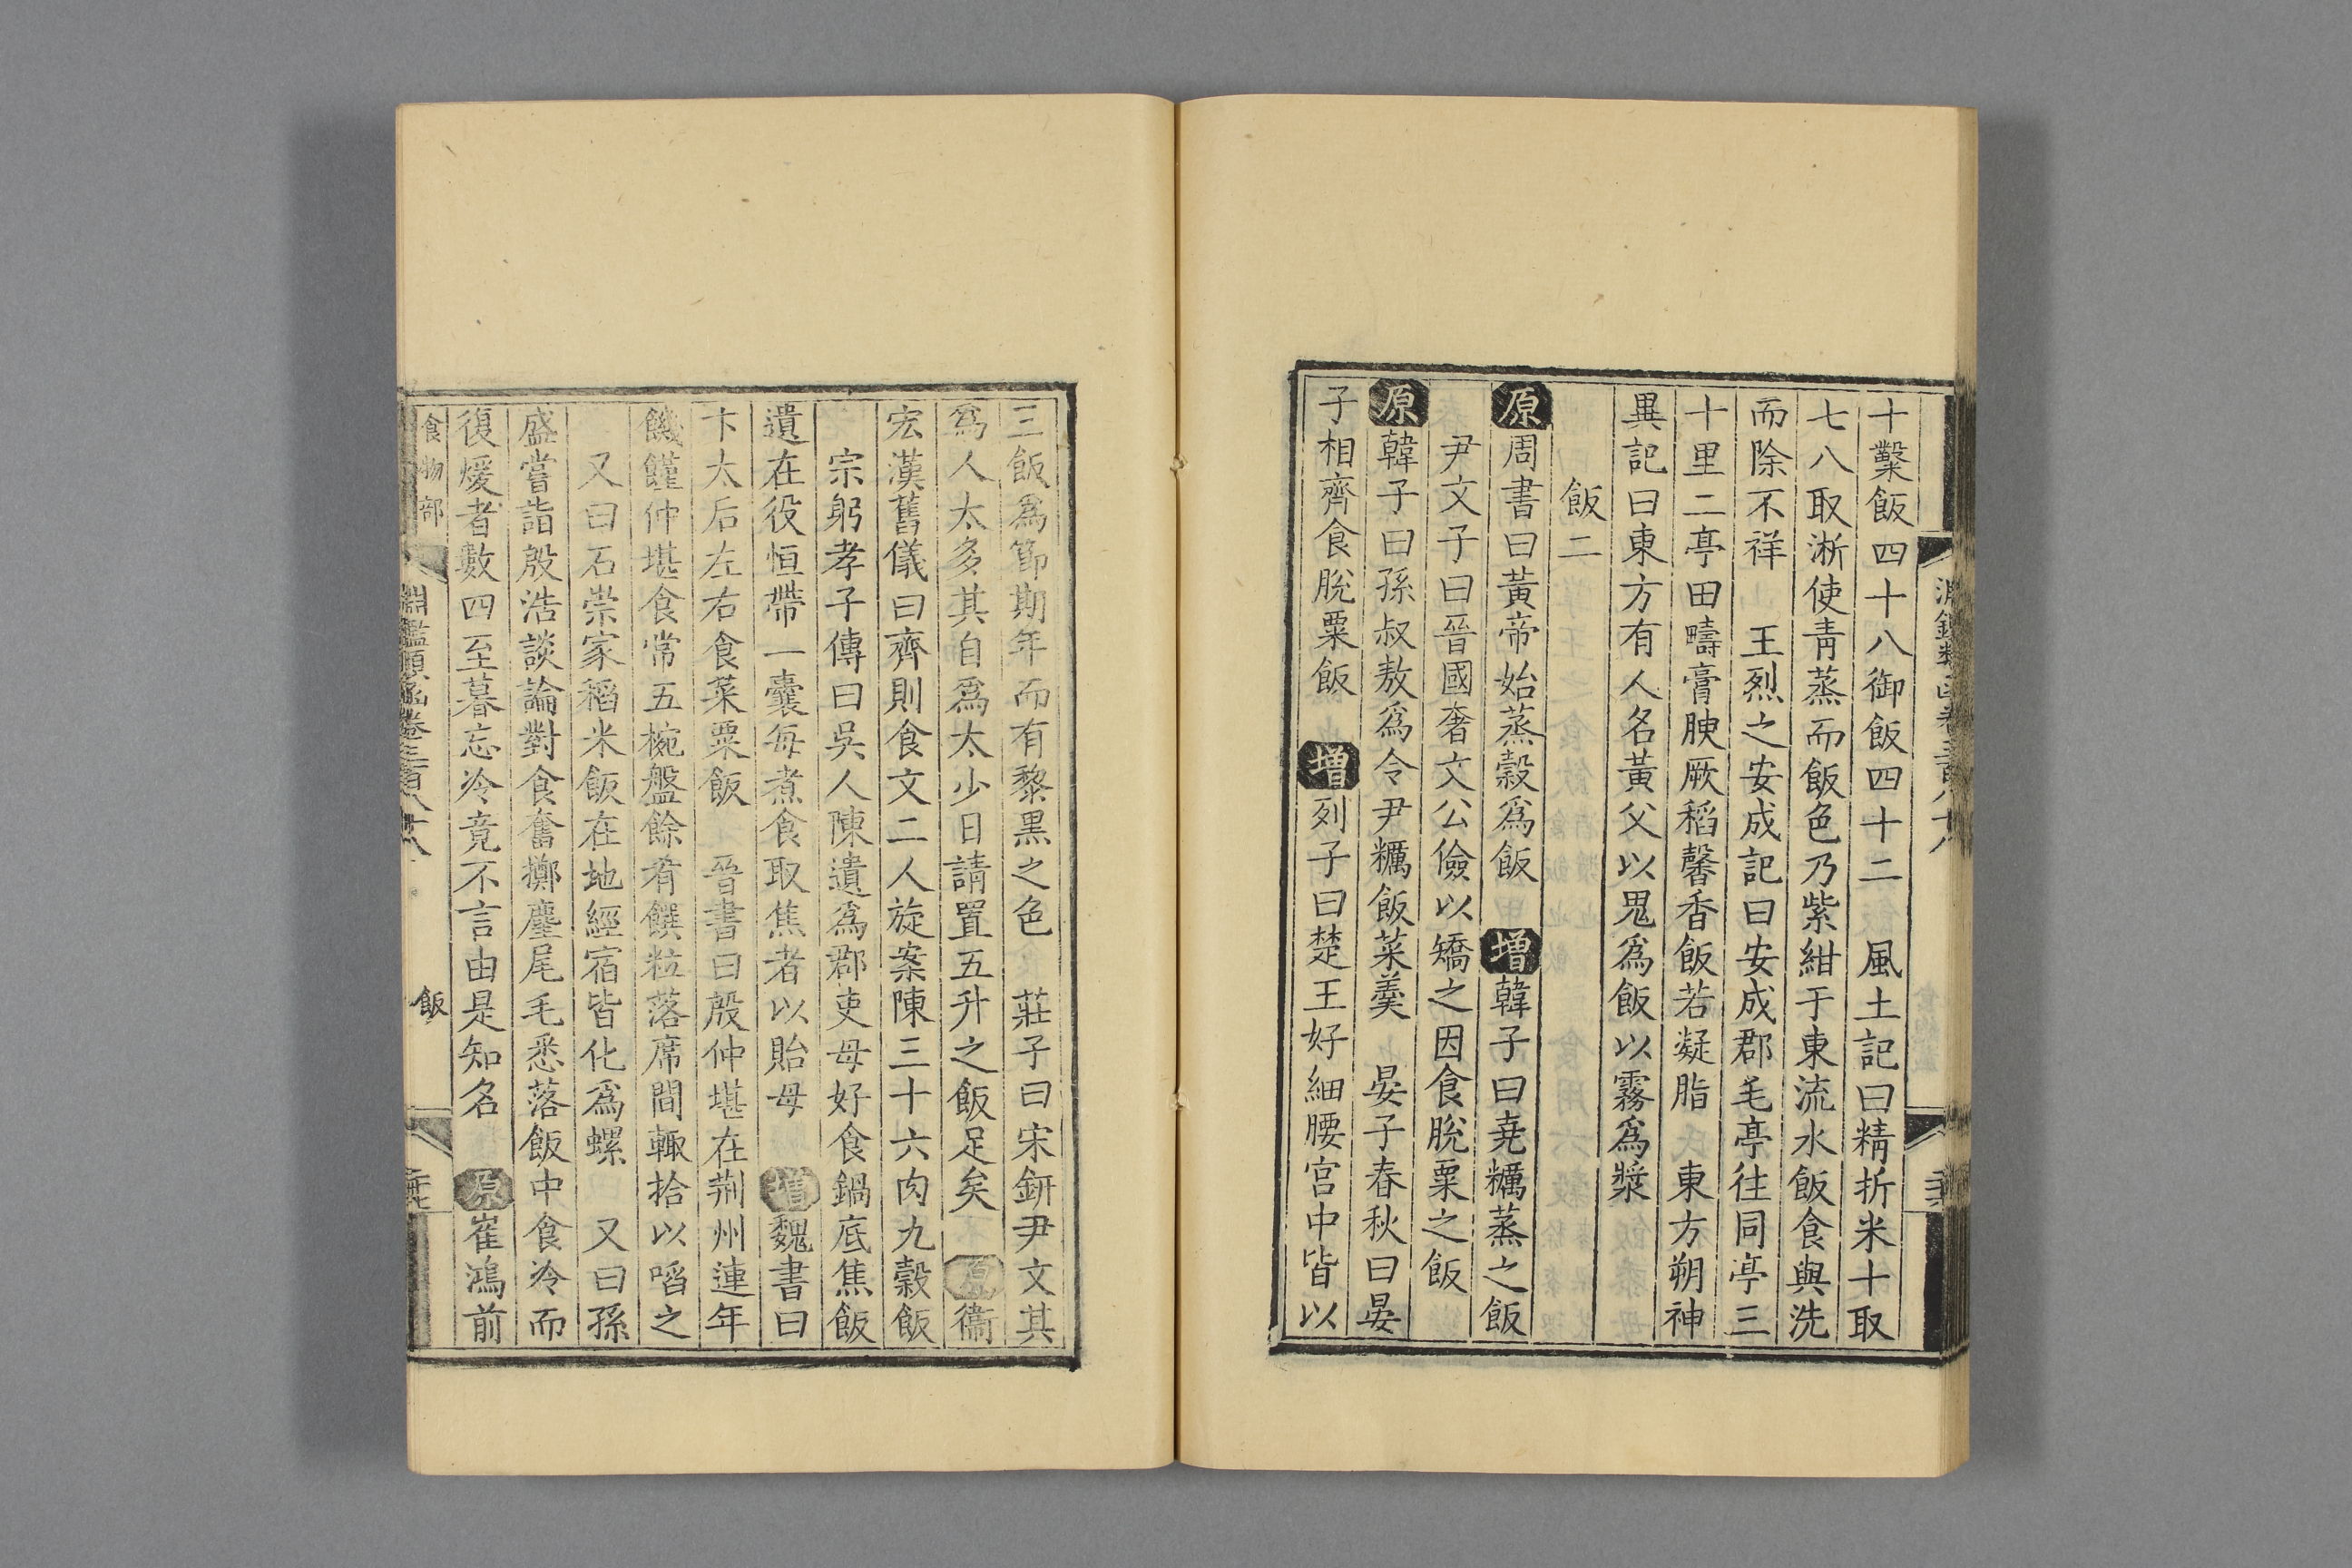 十糳飯四十八御飯四十二　風土記曰精折米十取
七八取淅使青蒸而飯色乃紫紺于東流水飯食與洗
而除不祥　王烈之安成記曰安成郡毛亭往同亭三
十里二亭田疇膏腴厥稻馨香飯若凝脂　東方朔神
異記曰東方有人名黃父以鬼爲飯以霧爲漿
飯二
原周書曰黃帝始蒸穀爲飯　增韓子曰堯糲蒸之飯
尹文子曰晉國奢文公儉以矯之因食脫粟之飯
原韓子曰孫叔敖爲令尹糲飯菜羹　晏子春秋曰晏
子相齊食脫粟飯　增列子曰楚王好細腰宮中皆以
三飯爲節期年而有黎黑之色　莊子曰宋鈃尹文其
爲人太多其自爲太少曰請置五升之飯足矣　原衞
宏漢舊儀曰齊則食文二人旋案陳三十六肉九穀飯
宗躬孝子傳曰吳人陳遺爲郡吏母好食鍋底焦飯
遺在役恒帶一囊每煮食取焦者以貽母　增魏書曰
卞太后左右食菜粟飯　晉書曰殷仲堪在荆州連年
饑饉仲堪食常五椀盤餘肴饌粒落席間輙拾以啗之
又曰石崇家稻米飯在地經宿皆化爲螺　又曰孫
盛嘗詣殷浩談論對食奮擲麈尾毛悉落飯中食冷而
復煖者數四至暮忘冷竟不言由是知名　原崔鴻前
食物部
淵鑑類函卷三百八十八
飯